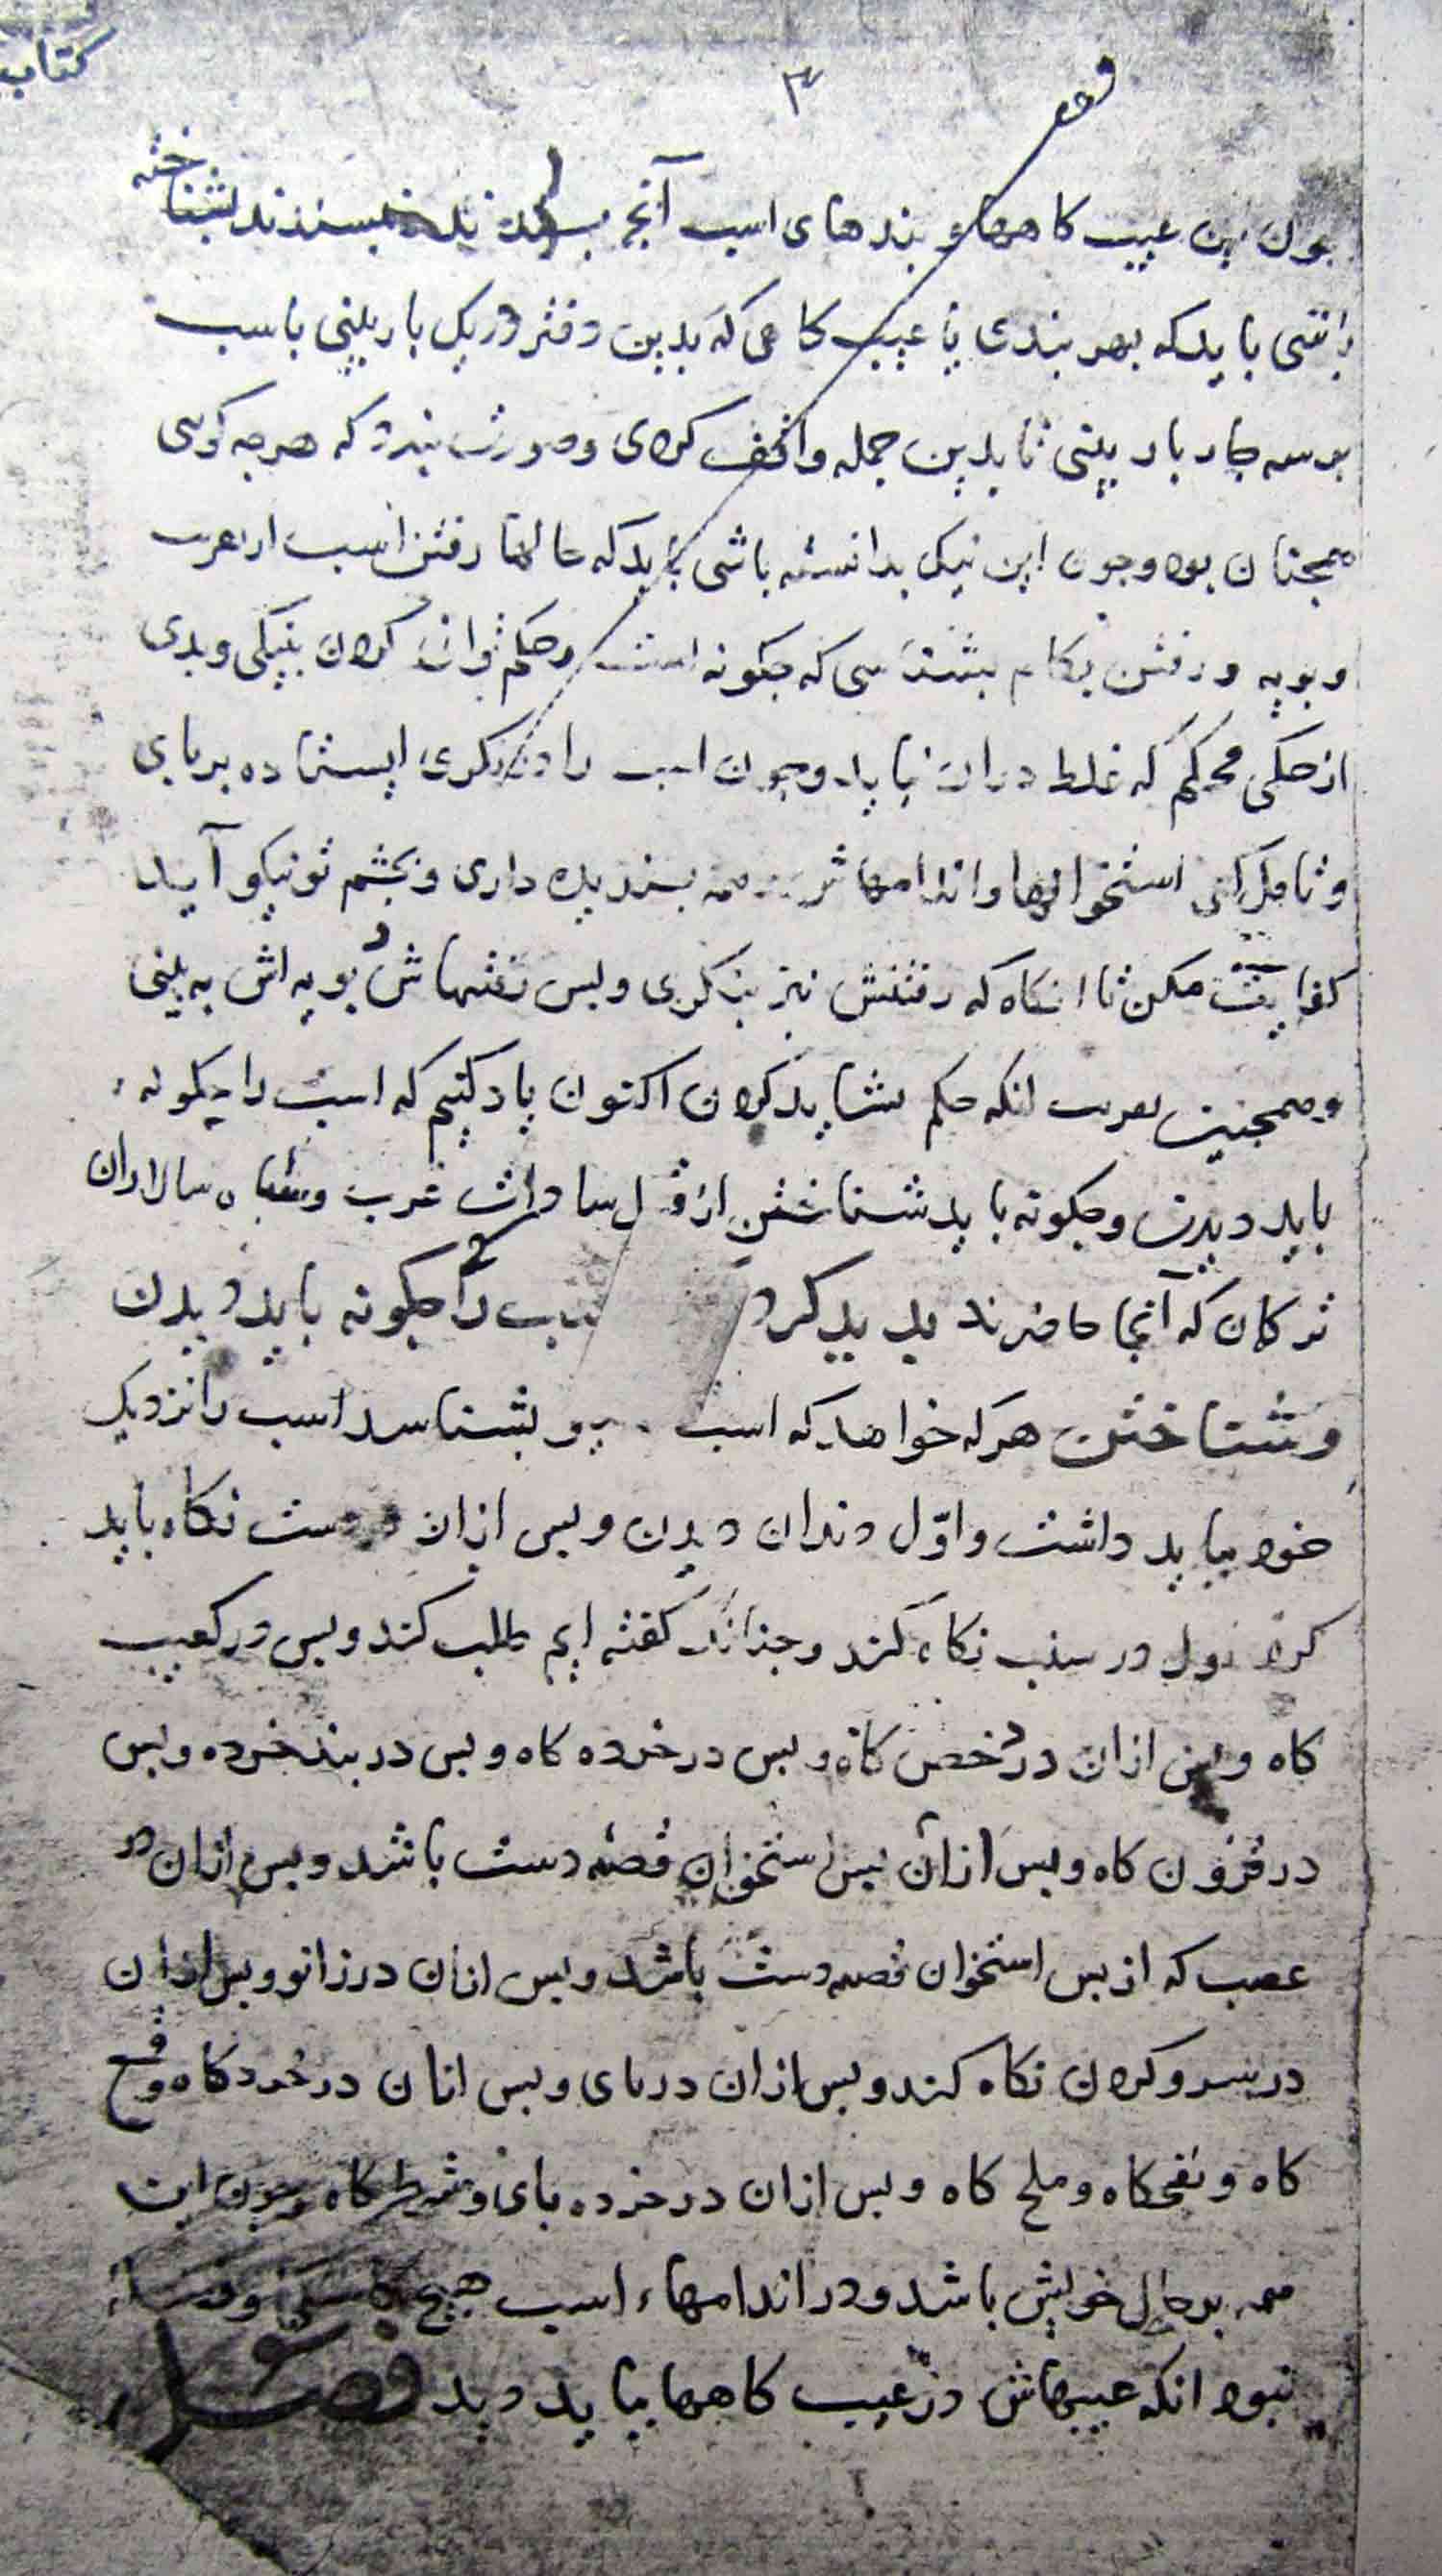 کتاب
۳
چون این عیب کاهها و بندهای اسب آنچ پسندند بشناخته
باشی باید که بهر بندی یا عیب کاهی که بدین دفتر در یک بار بینی باسب
بر سه چار بار بینی تا بدین جمله واقف کردی و صورت بندد که هرچه کوئی
همچنان بود و چون این نیک بدانسته باشی باید که حالها رفتن اسب از
و بویه و رفتن بکام بشناسی که چکونه است و حکم توانی کردن بنیکی و بدی
از حکمی محکم که غلط دران نیاید و چون اسب را بنکری ایستاده بر پای
و تامل کنی استخوانها و اندامهاش همه پسندیده داری و بچشم تو نیکو آید
کفایت مکن تا انکاه که رفتنش نیز بنکری و پس رفتنهاش و بویه اش به بینی
و همچنین انکه حکم شاید کردن اکنون یاد کنیم که اسب را چکونه
باید دیدن و چکونه باید شناختن از قول سادات عرب و سپاه سالاران
ترکان که آنجا حاضرند پدید کرد اسب را چکونه باید دیدن
و شناختن هرکه خواهد که اسب بشناسد اسب را نزدیک
خود بباید داشت و اوّل دندان دیدن و پس ازان دست نکاه باید
کرد اول در سنب نکاه کند و چنانک کفته ایم طلب کند و پس در کعب
کاه و پس ازان در رخص کاه و پس در خرده کاه و پس در بند خرده و پس
در فزون کاه و پس ازان پس استخوان قصبه دست باشد و پس ازان در
عصب که از پس استخوان قصبه دست باشد و پس ازان در زانو و پس ازان
در سر و کردن نکاه کند و پس ازان در پای و پس ازان در خرد کاه و قمع
کاه و نفخکاه و ملح کاه و پس ازان در خرده پای و شرط کاه و چون این
همه بر حال خویش باشد و در اندامهاء اسب هیچ
نبود انکه عیبهاش در عیب کاهها بباید دید